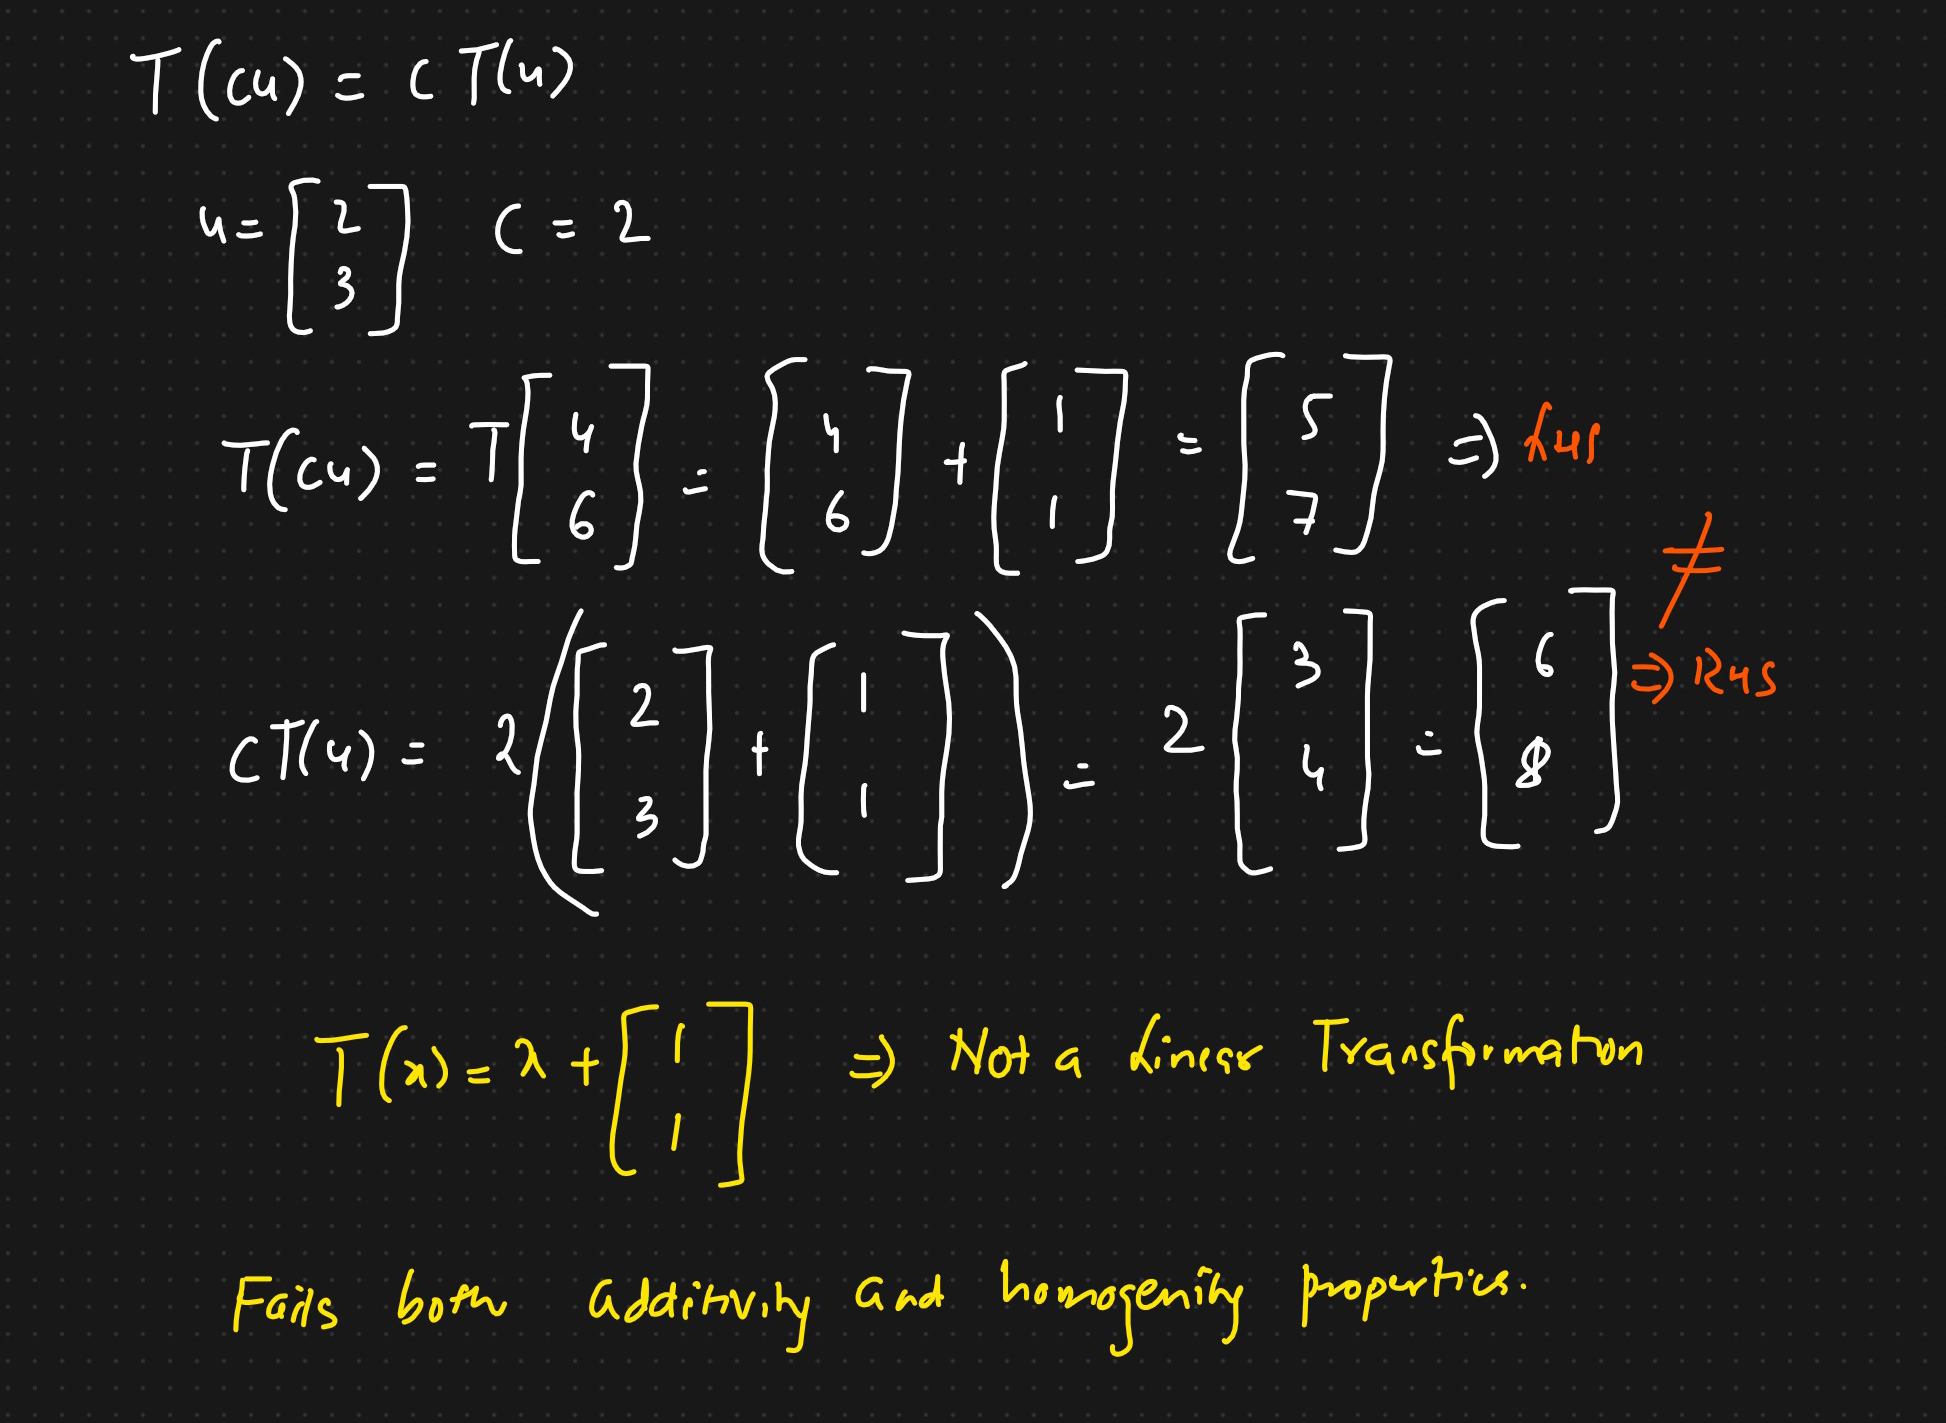 T(cu) = c T(u)
u = [2 3] c = 2
T(cu) = T[4 6] = [4 6] + [1 1] = [5 7] ⇒ LHS
≠
cT(u) = 2([2 3] + [1 1]) = 2[3 4] = [6 8] ⇒ RHS
T(x) = x + [1 1] ⇒ Not a Linear Transformation
Fails both additivity and homogenity properties.